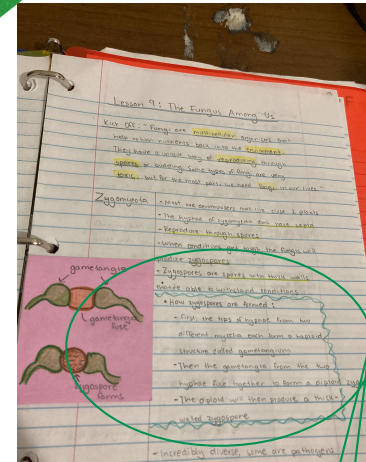 Lesson 9: The Fungus Among Us
Kick-Off: "Fungi are multicellular organisms that
help return nutrients back into the environment.
They have a unique way of reproducing through
spores or budding. Some types of fungi are very
toxic, but for the most part, we need fungi in our lives."
Zygomycota
- Most are decomposers that live close to plants
- The hyphae of zygomycota don't have septa
- Reproduce through spores
- When conditions are tough the fungus will
produce zygospores
- Zygospores are spores with thick walls
able to withstand conditions
gametangia
gametangia
fuse
zygospore
forms
• How zygospores are formed:
- First, the tips of hyphae from two
different mycelia each form a haploid
structure called gametangium
- Then the gametangia from the two
hyphae fuse together to form a diploid
- The diploid will then produce a thick-
walled zygospore
- Incredibly diverse, some are pathogens